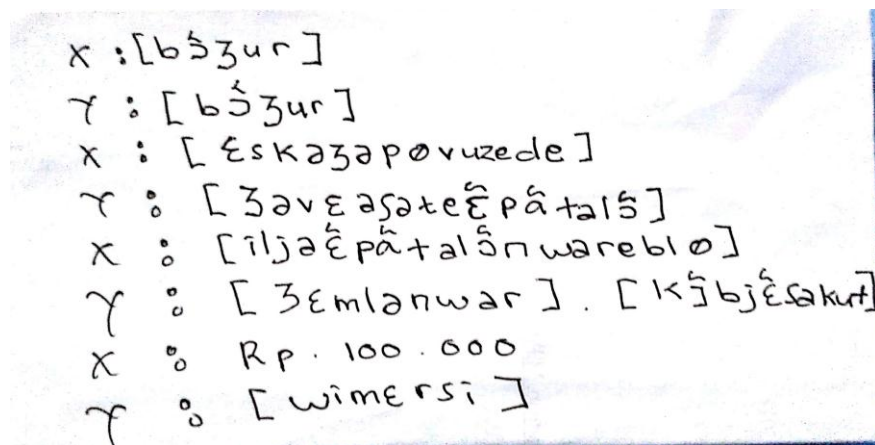 X : [bɔ̃ʒur]
Y : [bɔ̃ʒur]
X : [ɛskəʒəpøvuzede]
Y : [ʒəvɛaʃəteɛ̃pɑ̃talɔ̃]
X : [iljəɛ̃pɑ̃talɔ̃nwareblø]
Y : [ʒɛmlənwar]. [kɔ̃bjɛ̃sakut]
X : Rp. 100.000
Y : [wimɛrsi]